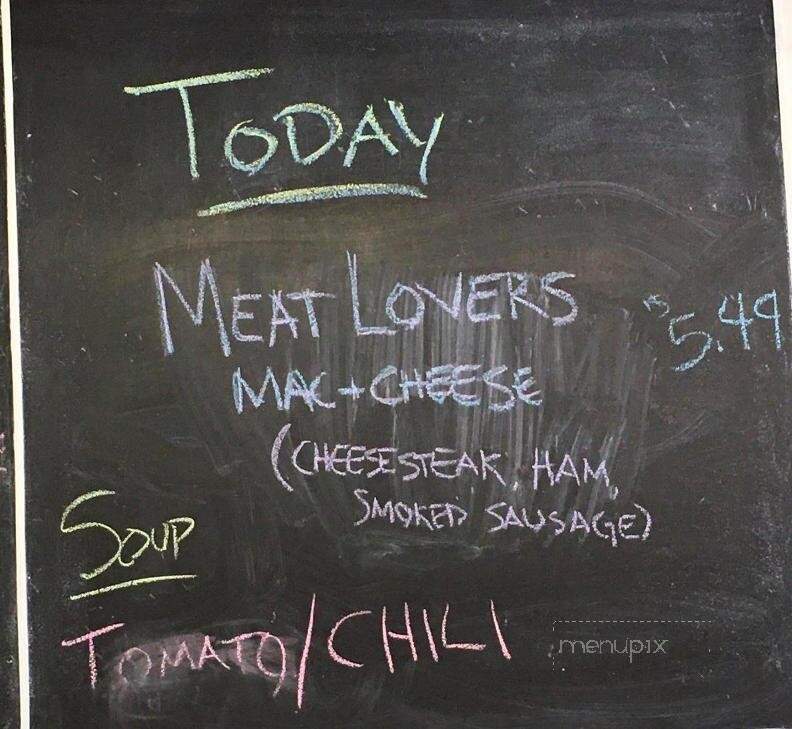 TODAY
MEAT LOVERS $5.49
MAC+CHEESE
(CHEESESTEAK, HAM,
SMOKED SAUSAGE)
SOUP
TOMATO/CHILI
menupix